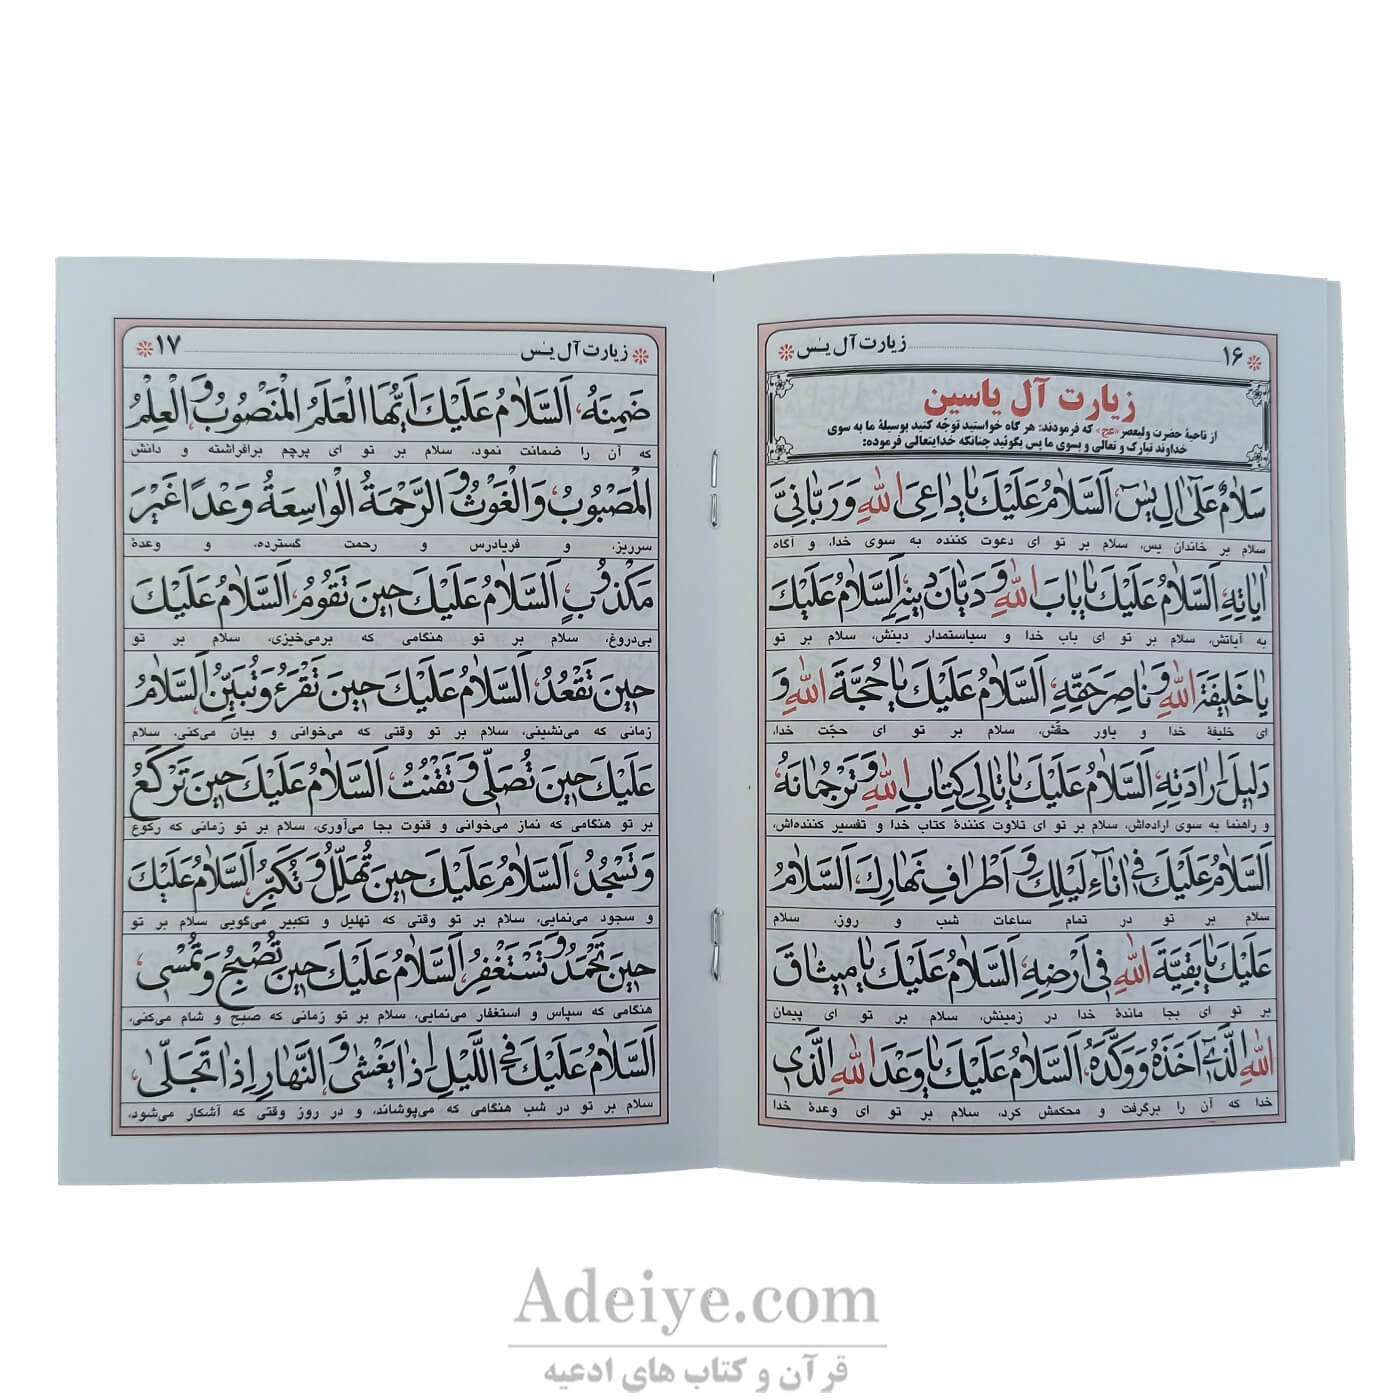 ۱۶ زیارت آل یـٰس
زیارت آل یاسین
از ناحیهٔ حضرت ولیعصر «عج» که فرمودند: هر گاه خواستید توجّه کنید بوسیلهٔ ما به سوی
خداوند تبارک و تعالی و بسوی ما پس بگوئید چنانکه خدایتعالی فرموده:
سَلَامٌ عَلَىٰ اٰلِ يٰسٓ، اَلسَّلَامُ عَلَيْكَ يَا دَاعِيَ اللّٰهِ وَ رَبَّانِيَّ
سلام بر خاندان یس، سلام بر تو ای دعوت کننده به سوی خدا، و آگاه
اٰيَاتِهِ، اَلسَّلَامُ عَلَيْكَ يَا بَابَ اللّٰهِ وَ دَيَّانَ دِينِهِ، اَلسَّلَامُ عَلَيْكَ
به آیاتش، سلام بر تو ای باب خدا و سیاستمدار دینش، سلام بر تو
يَا خَلِيفَةَ اللّٰهِ وَ نَاصِرَ حَقِّهِ، اَلسَّلَامُ عَلَيْكَ يَا حُجَّةَ اللّٰهِ وَ
ای خلیفهٔ خدا و یاور حقّش، سلام بر تو ای حجّت خدا،
دَلِيلَ اِرَادَتِهِ، اَلسَّلَامُ عَلَيْكَ يَا تَالِيَ كِتَابِ اللّٰهِ وَ تَرْجُمَانَهُ،
و راهنما به سوی اراده‌اش، سلام بر تو ای تلاوت کنندهٔ کتاب خدا و تفسیر کننده‌اش،
اَلسَّلَامُ عَلَيْكَ فِي اٰنَاءِ لَيْلِكَ وَ اَطْرَافِ نَهَارِكَ، اَلسَّلَامُ
سلام بر تو در تمام ساعات شب و روز، سلام
عَلَيْكَ يَا بَقِيَّةَ اللّٰهِ فِي اَرْضِهِ، اَلسَّلَامُ عَلَيْكَ يَا مِيثَاقَ
بر تو ای بجا ماندهٔ خدا در زمینش، سلام بر تو ای پیمان
اللّٰهِ الَّذِي اَخَذَهُ وَ وَكَّدَهُ، اَلسَّلَامُ عَلَيْكَ يَا وَعْدَ اللّٰهِ الَّذِي
خدا که آن را برگرفت و محکمش کرد، سلام بر تو ای وعدهٔ خدا
زیارت آل یـٰس ۱۷
ضَمِنَهُ، اَلسَّلَامُ عَلَيْكَ اَيُّهَا الْعَلَمُ الْمَنْصُوبُ وَ الْعِلْمُ
که آن را ضمانت نمود، سلام بر تو ای پرچم برافراشته و دانش
الْمَصْبُوبُ، وَ الْغَوْثُ وَ الرَّحْمَةُ الْوَاسِعَةُ وَعْدًا غَيْرَ
سرریز، و فریادرس و رحمت گسترده، و وعدهٔ
مَكْذُوبٍ، اَلسَّلَامُ عَلَيْكَ حِينَ تَقُومُ، اَلسَّلَامُ عَلَيْكَ
بی‌دروغ، سلام بر تو هنگامی که برمی‌خیزی، سلام بر تو
حِينَ تَقْعُدُ، اَلسَّلَامُ عَلَيْكَ حِينَ تَقْرَءُ وَ تُبَيِّنُ، اَلسَّلَامُ
زمانی که می‌نشینی، سلام بر تو وقتی که می‌خوانی و بیان می‌کنی، سلام
عَلَيْكَ حِينَ تُصَلِّي وَ تَقْنُتُ، اَلسَّلَامُ عَلَيْكَ حِينَ تَرْكَعُ
بر تو هنگامی که نماز می‌خوانی و قنوت بجا می‌آوری، سلام بر تو زمانی که رکوع
وَ تَسْجُدُ، اَلسَّلَامُ عَلَيْكَ حِينَ تُهَلِّلُ وَ تُكَبِّرُ، اَلسَّلَامُ عَلَيْكَ
و سجود می‌نمایی، سلام بر تو وقتی که تهلیل و تکبیر می‌گویی سلام بر تو
حِينَ تَحْمَدُ وَ تَسْتَغْفِرُ، اَلسَّلَامُ عَلَيْكَ حِينَ تُصْبِحُ وَ تُمْسِي،
هنگامی که سپاس و استغفار می‌نمایی، سلام بر تو زمانی که صبح و شام می‌کنی،
اَلسَّلَامُ عَلَيْكَ فِي اللَّيْلِ اِذَا يَغْشَىٰ وَ النَّهَارِ اِذَا تَجَلَّىٰ،
سلام بر تو در شب هنگامی که می‌پوشاند، و در روز وقتی که آشکار می‌شود،
Adeiye.com
قرآن و کتاب های ادعیه